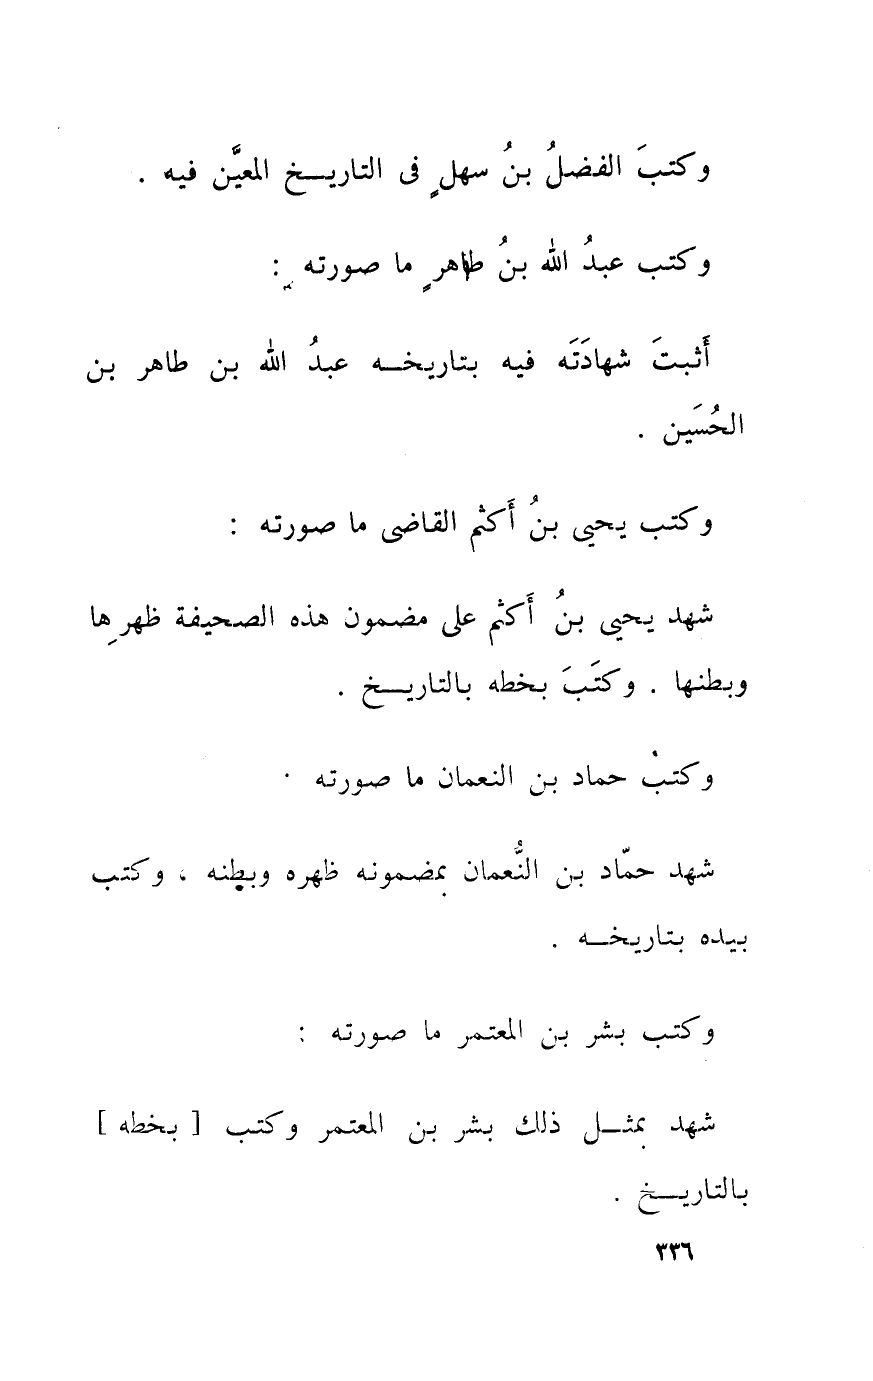 وكتبَ الفضلُ بنُ سهلٍ فى التاريخ المعيَّن فيه .
وكتب عبدُ الله بنُ طاهرٍ ما صورته :
أَثبتَ شهادَتَه فيه بتاريخه عبدُ الله بن طاهر بن
الحُسَين .
وكتب يحيى بنُ أَكثم القاضى ما صورته :
شهد يحيى بنُ أَكثم على مضمون هذه الصحيفة ظهرِها
وبطنها . وكتَبَ بخطه بالتاريخ .
وكتبْ حماد بن النعمان ما صورته .
شهد حمّاد بن النُّعمان بمضمونه ظهره وبطنه ، وكتب
بيده بتاريخه .
وكتب بشر بن المعتمر ما صورته :
شهد بمثل ذلك بشر بن المعتمر وكتب [ بخطه ]
بالتاريخ .
٣٣٦